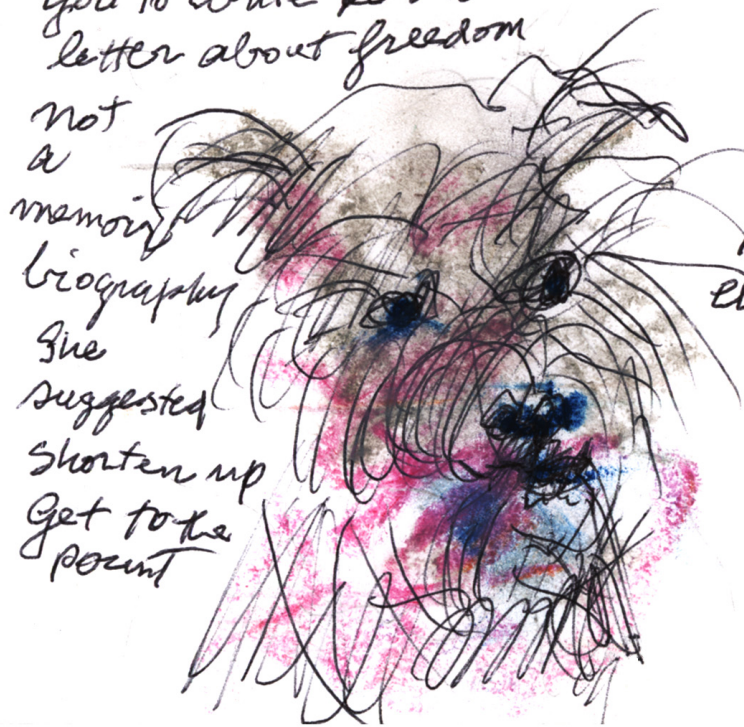 you to write
letter about freedom
not
a
memoir
biography
She
suggested
shorten up
Get to the
point